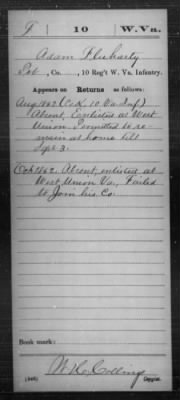 F | 10 | W. Va.
Adam Fluharty
Pvt, Co. , 10 Reg't W. Va. Infantry.
Appears on Returns as follows:
Aug 1862 (Co L, 10 Va Inf)
Absent, Enlisted at West
Union Permitted to re-
main at home till
Sept 3.
Oct 1862. Absent, enlisted at
West Union Va., Failed
to Join his Co.
Book mark:
W. H. Collins
(546) Copyist.